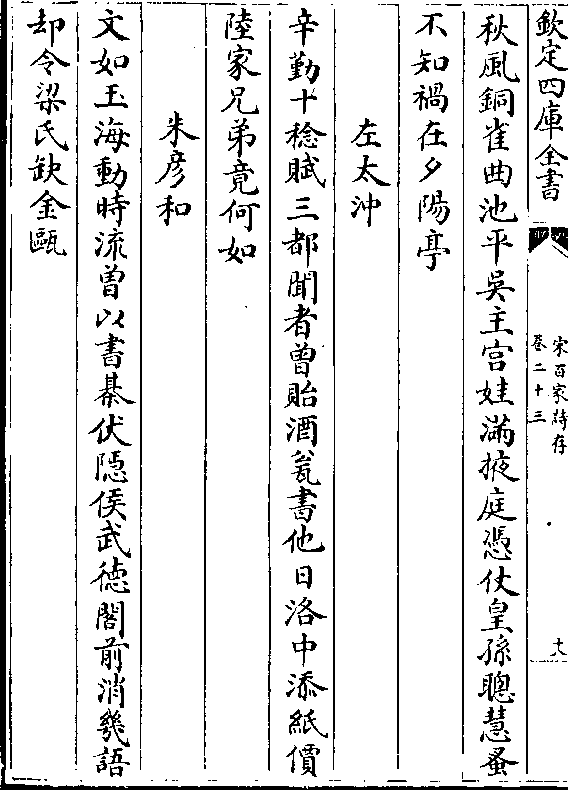 欽定四庫全書
宋百家詩存
卷二十三
大
秋風銅雀曲池平吳主宫娃滿掖庭憑仗皇孫聰慧蚤
不知禍在夕陽亭
左太沖
辛勤十稔賦三都聞者曾貽酒瓮書他日洛中添紙價
陸家兄弟竟何如
朱彦和
文如玉海動時流曾以書棊伏隠侯武德閤前消幾語
却令梁氏缺金甌